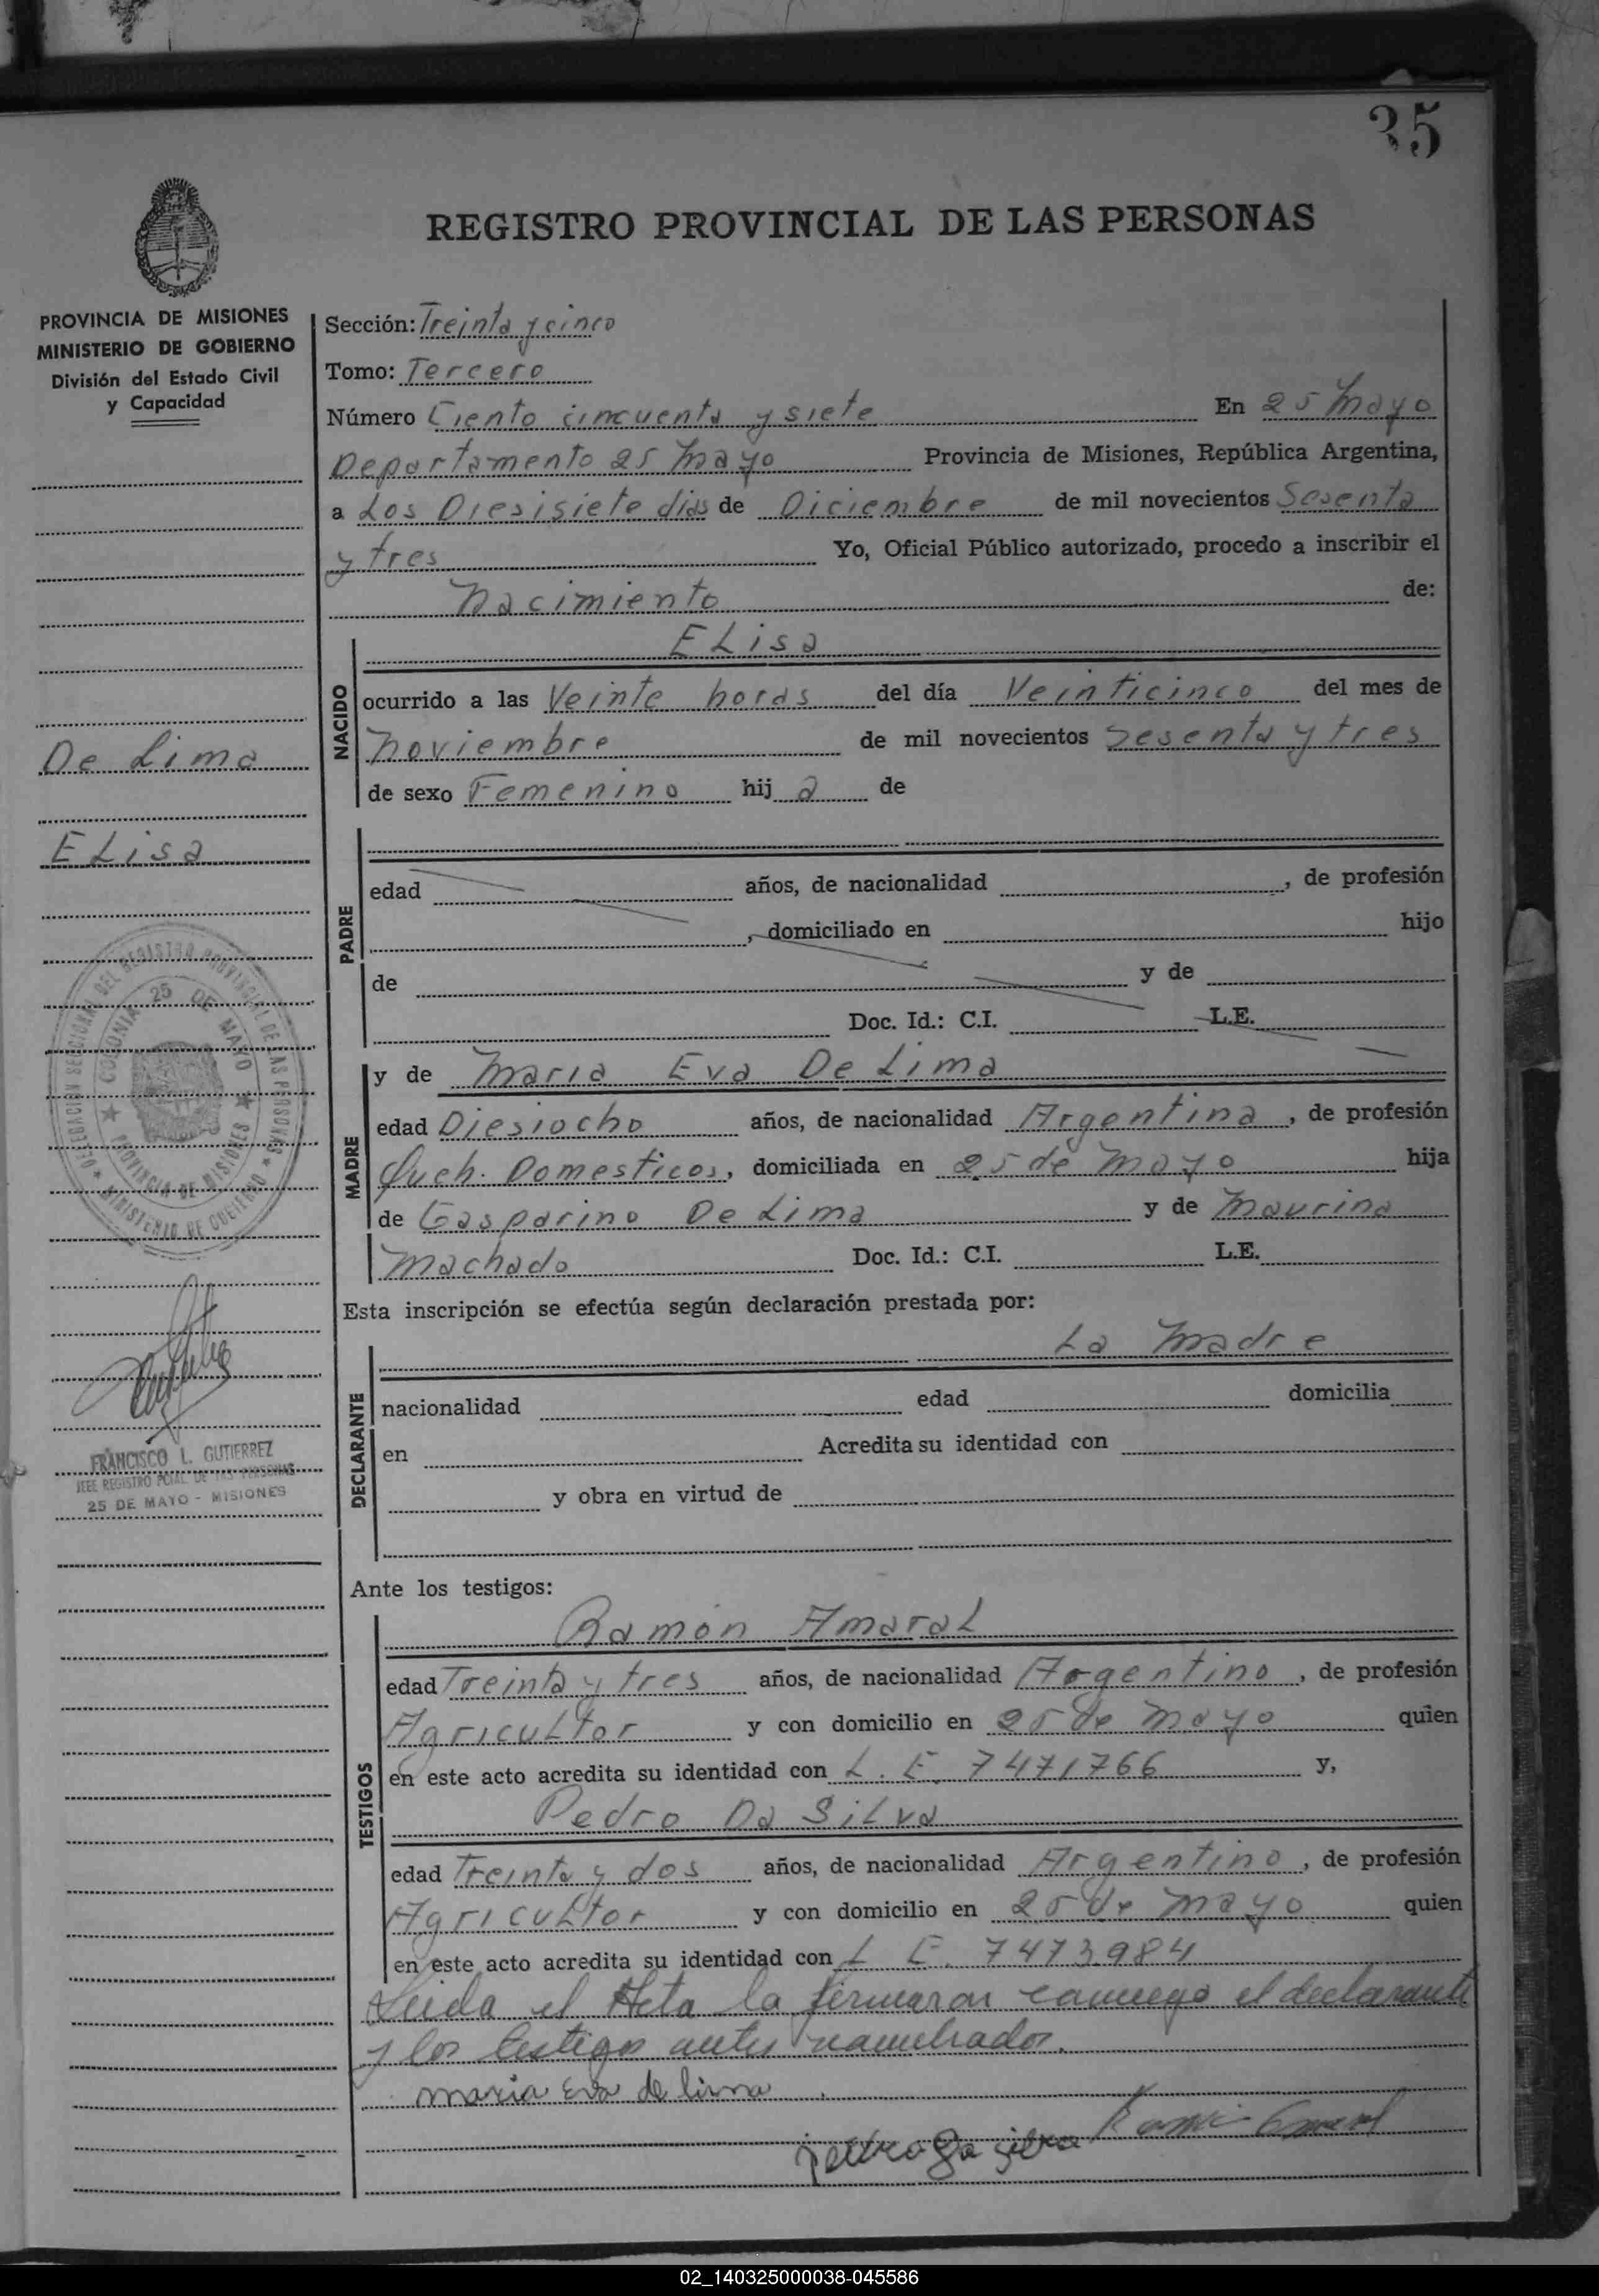 35
REGISTRO PROVINCIAL DE LAS PERSONAS
PROVINCIA DE MISIONES
MINISTERIO DE GOBIERNO
División del Estado Civil
y Capacidad
De Lima
ELisa
DELEGACION SECCIONAL DEL REGISTRO PROVINCIAL DE LAS PERSONAS
MINISTERIO DE GOBIERNO
COLONIA 25 DE MAYO
PROVINCIA DE MISIONES
FRANCISCO L. GUTIERREZ
JEFE REGISTRO PCIAL. DE LAS PERSONAS
25 DE MAYO - MISIONES
Sección: Treinta y cinco
Tomo: Tercero
Número Ciento cincuenta y siete En 25 Mayo
Departamento 25 Mayo Provincia de Misiones, República Argentina,
a Los Diesisiete dias de Diciembre de mil novecientos Sesenta
y tres Yo, Oficial Público autorizado, procedo a inscribir el
Nacimiento de:
NACIDO
ELisa
ocurrido a las Veinte horas del día Veinticinco del mes de
Noviembre de mil novecientos Sesenta y tres
de sexo Femenino hij a de
PADRE
edad años, de nacionalidad , de profesión
, domiciliado en hijo
de y de
Doc. Id.: C.I. L.E.
MADRE
y de Maria Eva De Lima
edad Diesiocho años, de nacionalidad Argentina, de profesión
Queh. Domesticos, domiciliada en 25 de Mayo hija
de Gasparino De Lima y de Maurina
Machado Doc. Id.: C.I. L.E.
Esta inscripción se efectúa según declaración prestada por:
DECLARANTE
La Madre
nacionalidad edad domicilia
en Acredita su identidad con
y obra en virtud de
Ante los testigos:
TESTIGOS
Ramón AmaraL
edad Treinta y tres años, de nacionalidad Argentino, de profesión
AgricuLtor y con domicilio en 25 de Mayo quien
en este acto acredita su identidad con L. E. 7471766 y,
Pedro Da SiLva
edad Treinta y dos años, de nacionalidad Argentino, de profesión
AgricuLtor y con domicilio en 25 de Mayo quien
en este acto acredita su identidad con L E. 7473984
Leida el Acta la firmaron conmigo el declarante
y los testigos antes nombrados.
maria Eva de lima
pedro da silva Ramón Amaral
02_140325000038-045586